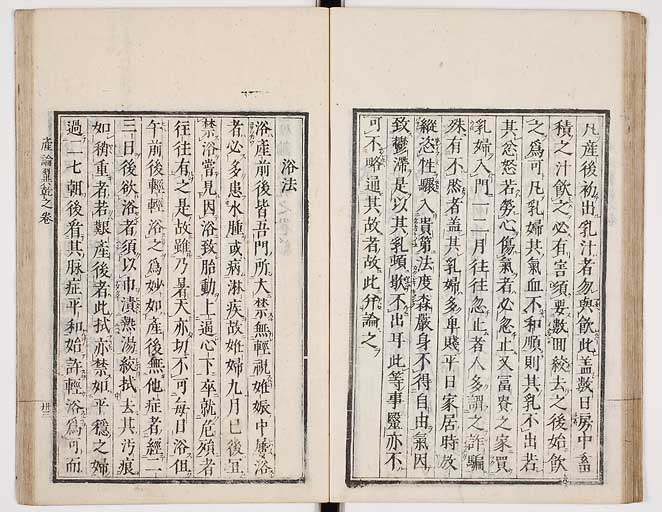 凡產後初出乳汁者勿與飲此蓋數日房中畜
積之汁飲之必有害須要數回絞去之後始飲
之爲可凡乳婦其氣血不和順則其乳不出若
其忿怒若勞心傷氣者必忽止又富貴之家買
乳婦入門一二月往往忽止者人多謂之詐騙
殊有不然者蓋其乳婦多卑賤平日家居時放
縱恣性驟入貴第法度森嚴身不得自由氣因
致鬱滯是以其乳頭歉不出耳此等事醫亦不
可不略通其故者故此弁論之
浴法
浴產前後皆吾門所大禁無輕視姙娠中屢浴
者必多患水腫或病淋疾故姙婦九月已後宜
禁浴嘗見因浴致胎動上逼心下卒就危殞者
往往有之是故雖乃暑天亦切不可每日浴但
午前後輕輕浴之爲妙如產後無他症者經二
三日後欲浴者須以巾漬熱湯絞拭去其汚痕
如稍重者若艱產後者此拭亦禁如平穩之婦
過二七朝後看其脉症平和始許輕浴爲可而
產論翼乾之卷